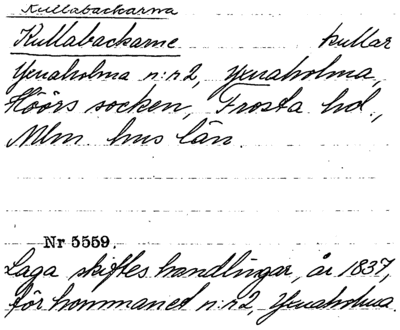 Kullabackarna
Kullabackarne kullar
Yxnaholma n:r 2, Yxnaholma,
Höörs socken, Frosta hd.,
Mlm hus län.
Nr 5559.
Laga skiftes handlingar, år 1837,
för hemmanet n:r 2, Yxnaholma.